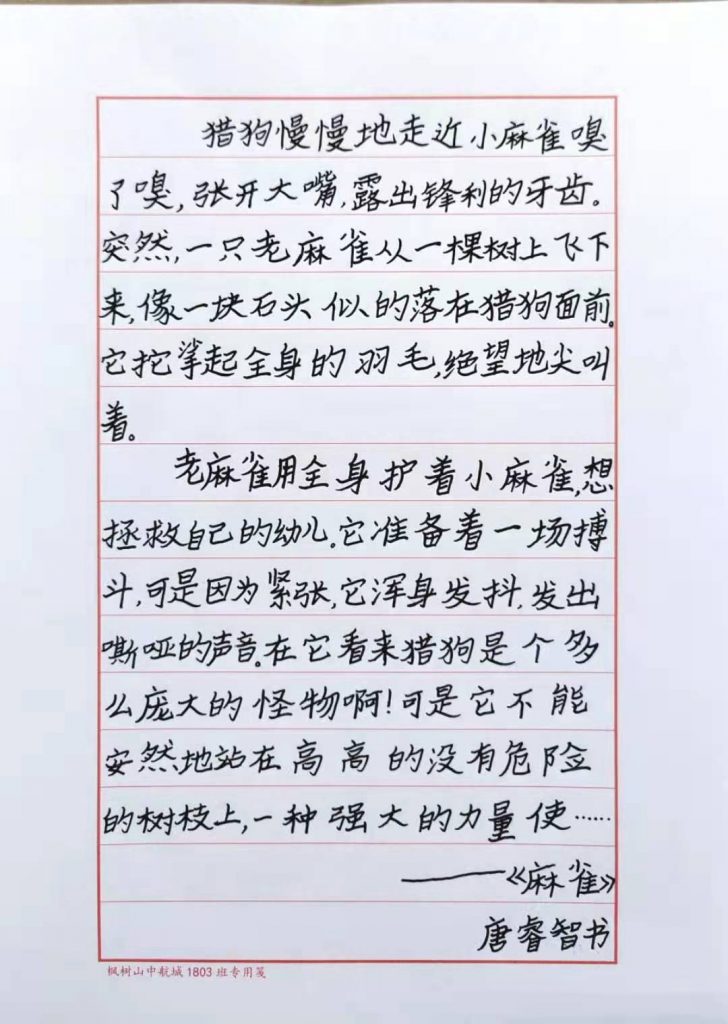 猎狗慢慢地走近小麻雀嗅
了嗅,张开大嘴,露出锋利的牙齿。
突然,一只老麻雀从一棵树上飞下
来,像一块石头似的落在猎狗面前。
它挓挲起全身的羽毛,绝望地尖叫
着。
老麻雀用全身护着小麻雀,想
拯救自己的幼儿。它准备着一场搏
斗,可是因为紧张,它浑身发抖,发出
嘶哑的声音。在它看来猎狗是个多
么庞大的怪物啊!可是它不能
安然地站在高高的没有危险
的树枝上,一种强大的力量使……
——《麻雀》
唐睿智书
枫树山中航城1803班专用笺